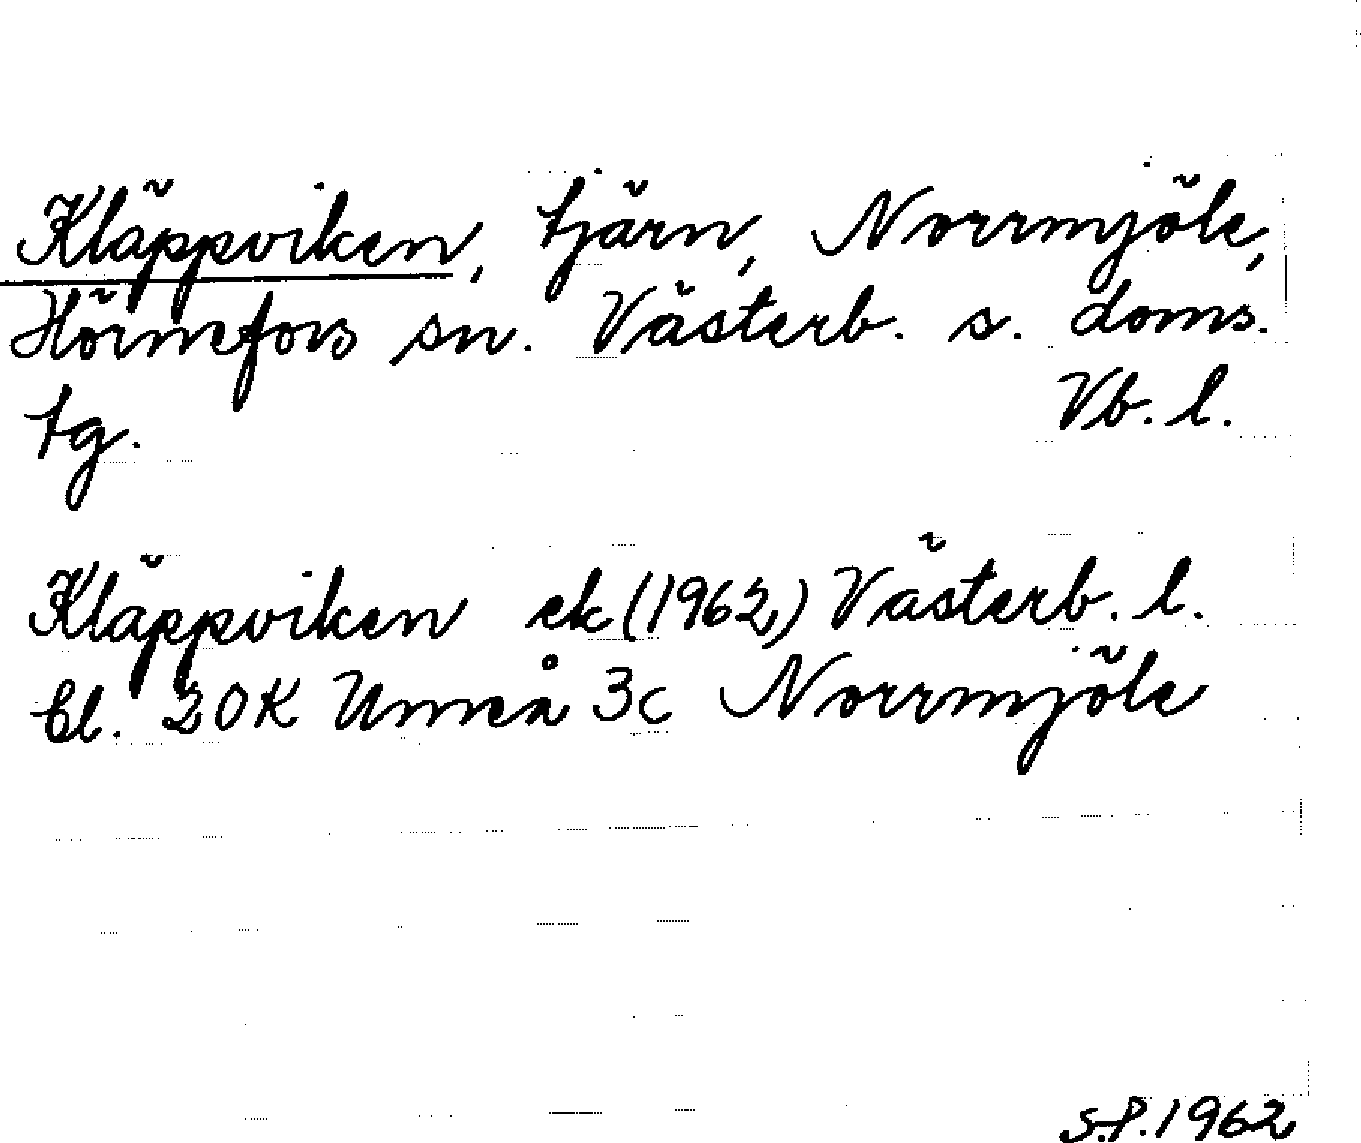 Kläppviken, tjärn, Norrmjöle,
Hörnefors sn. Västerb. s. doms.
tg. Vb. l.
Kläppviken ek (1962) Västerb. l.
bl. 20K Umeå 3c Norrmjöle
S.P. 1962